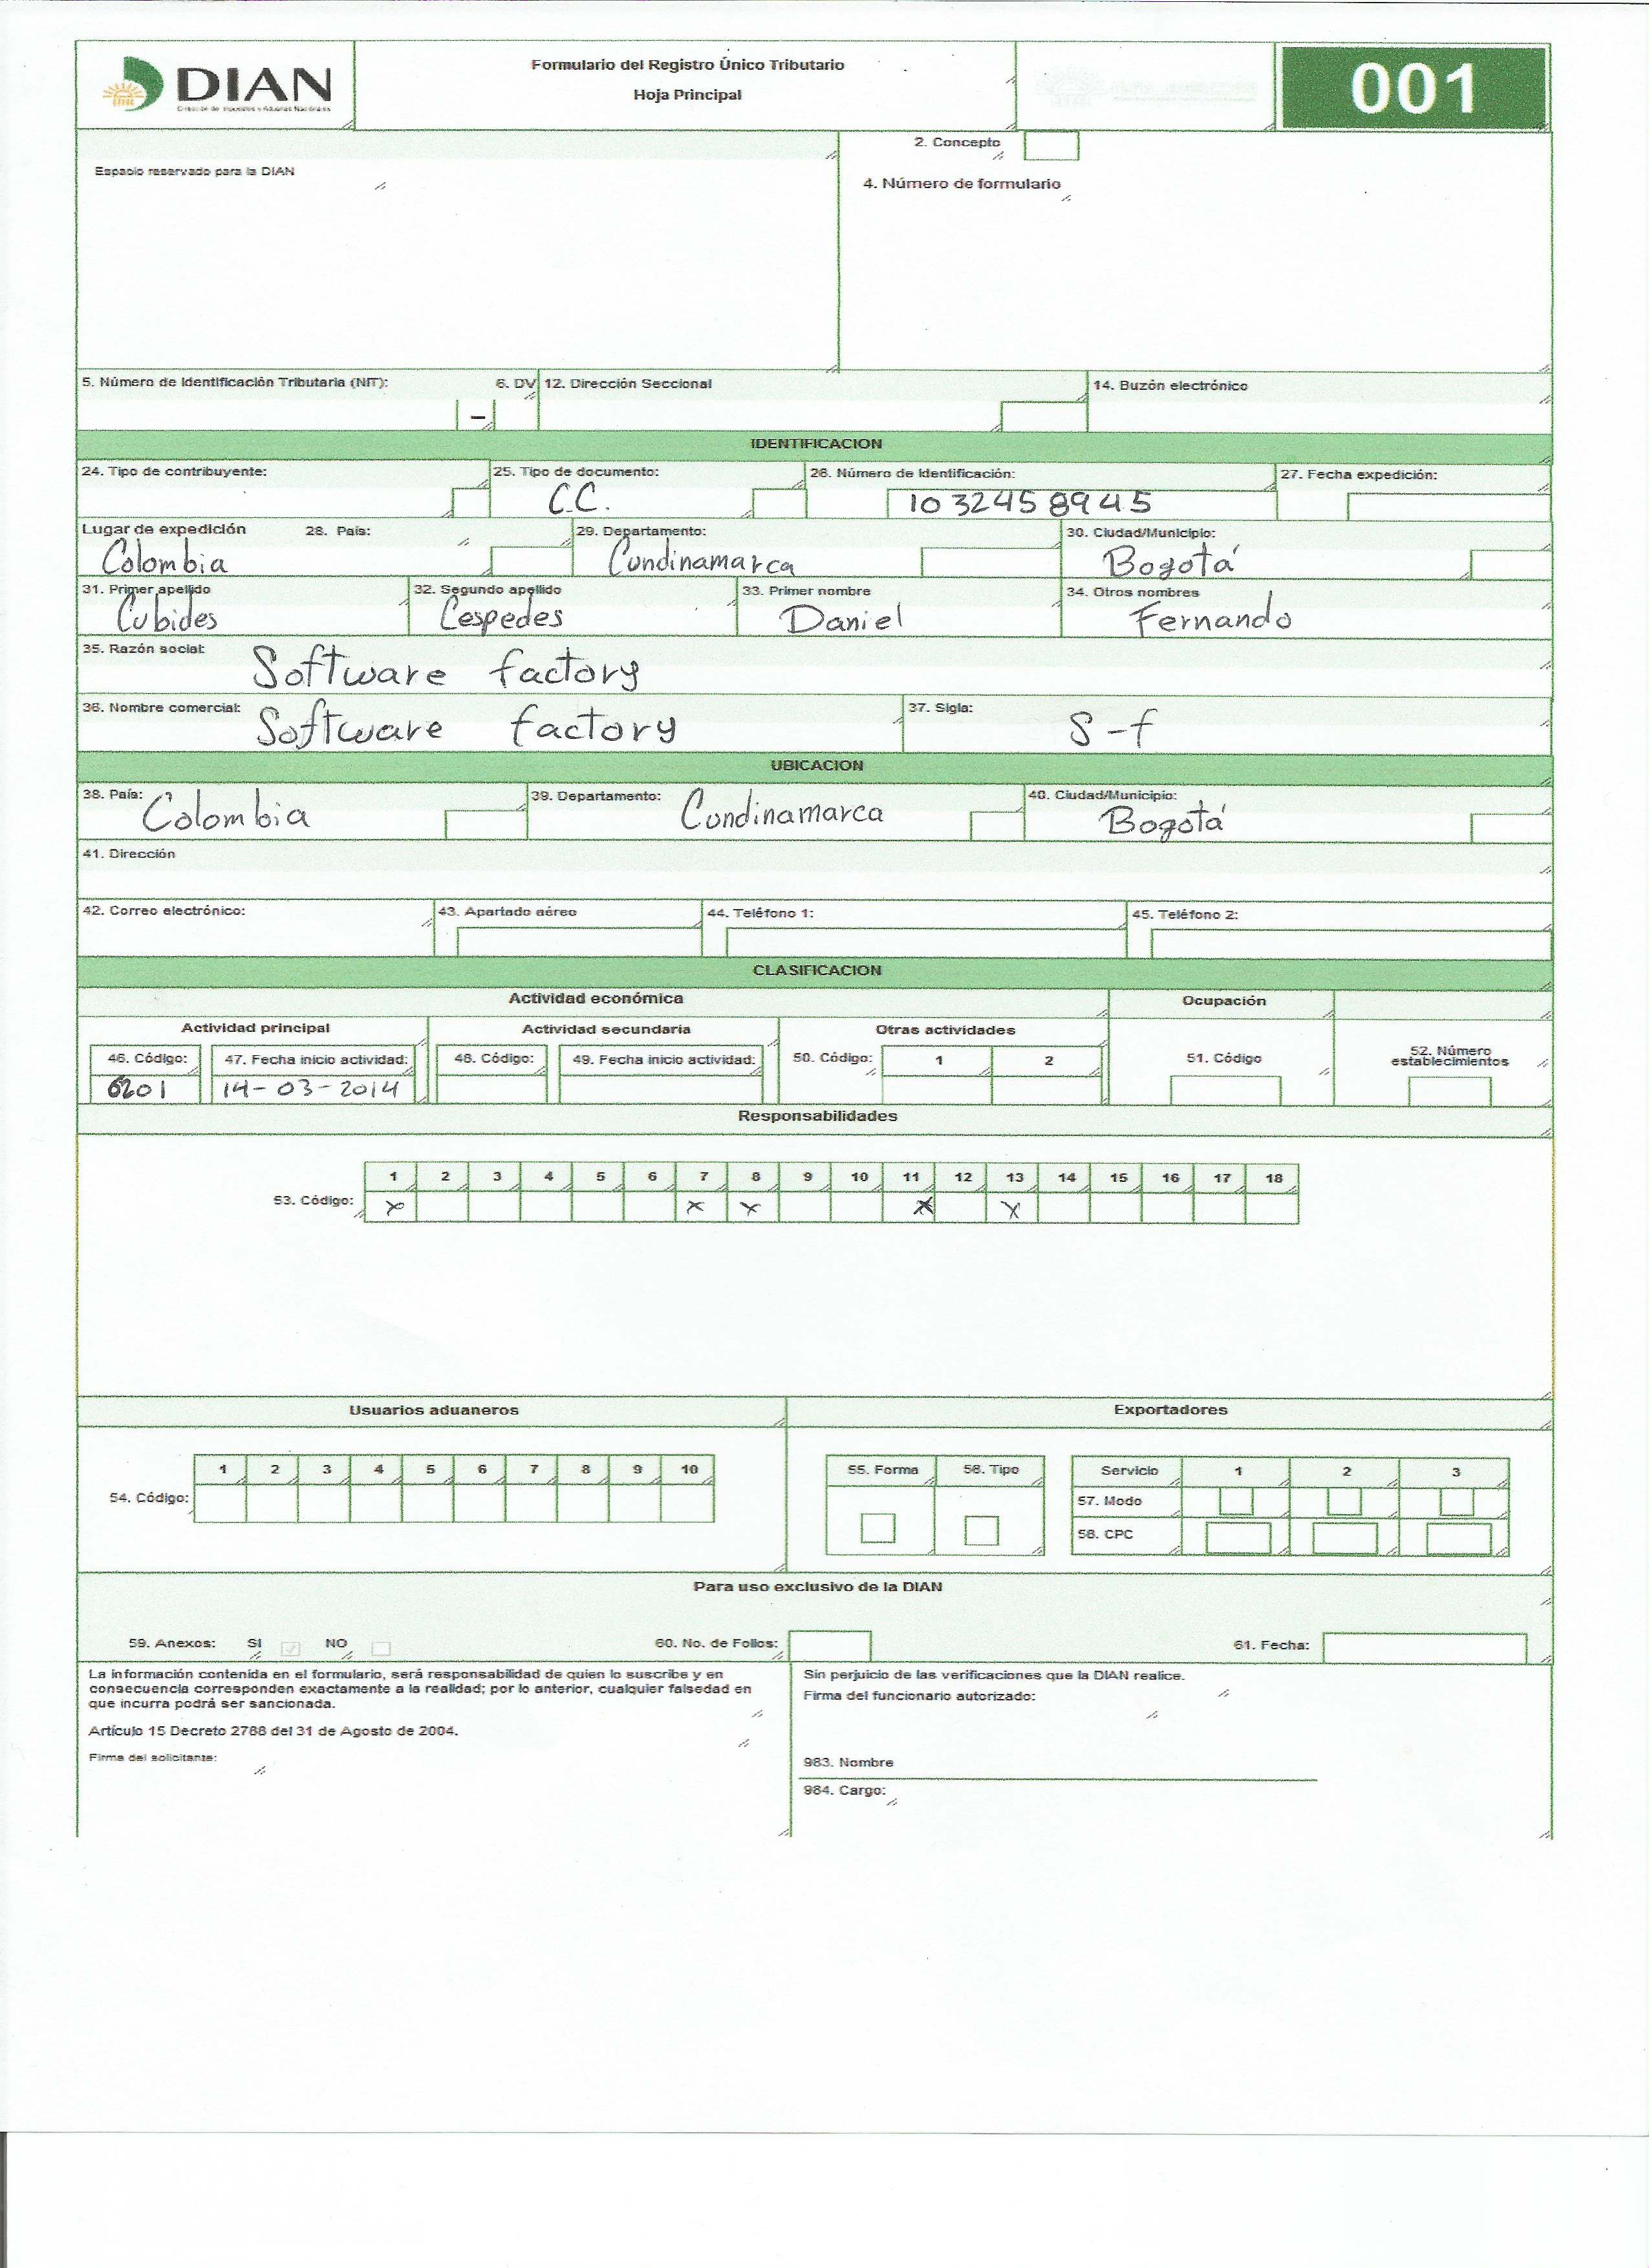 DIAN
Dirección de Impuestos y Aduanas Nacionales
Formulario del Registro Único Tributario
Hoja Principal
001
Espacio reservado para la DIAN
2. Concepto
4. Número de formulario
5. Número de Identificación Tributaria (NIT):
6. DV
12. Dirección Seccional
14. Buzón electrónico
-
IDENTIFICACION
24. Tipo de contribuyente:
25. Tipo de documento:
26. Número de Identificación:
27. Fecha expedición:
C.C.
1032458945
Lugar de expedición
28. País:
29. Departamento:
30. Ciudad/Municipio:
Colombia
Cundinamarca
Bogotá
31. Primer apellido
32. Segundo apellido
33. Primer nombre
34. Otros nombres
Cubides
Cespedes
Daniel
Fernando
35. Razón social:
Software factory
36. Nombre comercial:
Software factory
37. Sigla:
S-f
UBICACION
38. País:
Colombia
39. Departamento:
Cundinamarca
40. Ciudad/Municipio:
Bogotá
41. Dirección
42. Correo electrónico:
43. Apartado aéreo
44. Teléfono 1:
45. Teléfono 2:
CLASIFICACION
Actividad económica
Ocupación
Actividad principal
Actividad secundaria
Otras actividades
46. Código:
47. Fecha inicio actividad:
48. Código:
49. Fecha inicio actividad:
50. Código:
1 2
51. Código
52. Número establecimientos
6201
14-03-2014
Responsabilidades
1 2 3 4 5 6 7 8 9 10 11 12 13 14 15 16 17 18
53. Código:
x x x x x
Usuarios aduaneros
Exportadores
1 2 3 4 5 6 7 8 9 10
54. Código:
55. Forma
56. Tipo
Servicio 1 2 3
57. Modo
58. CPC
Para uso exclusivo de la DIAN
59. Anexos: SI NO
60. No. de Folios:
61. Fecha:
La información contenida en el formulario, será responsabilidad de quien lo suscribe y en
consecuencia corresponden exactamente a la realidad; por lo anterior, cualquier falsedad en
que incurra podrá ser sancionada.
Artículo 15 Decreto 2788 del 31 de Agosto de 2004.
Firma del solicitante:
Sin perjuicio de las verificaciones que la DIAN realice.
Firma del funcionario autorizado:
983. Nombre
984. Cargo: